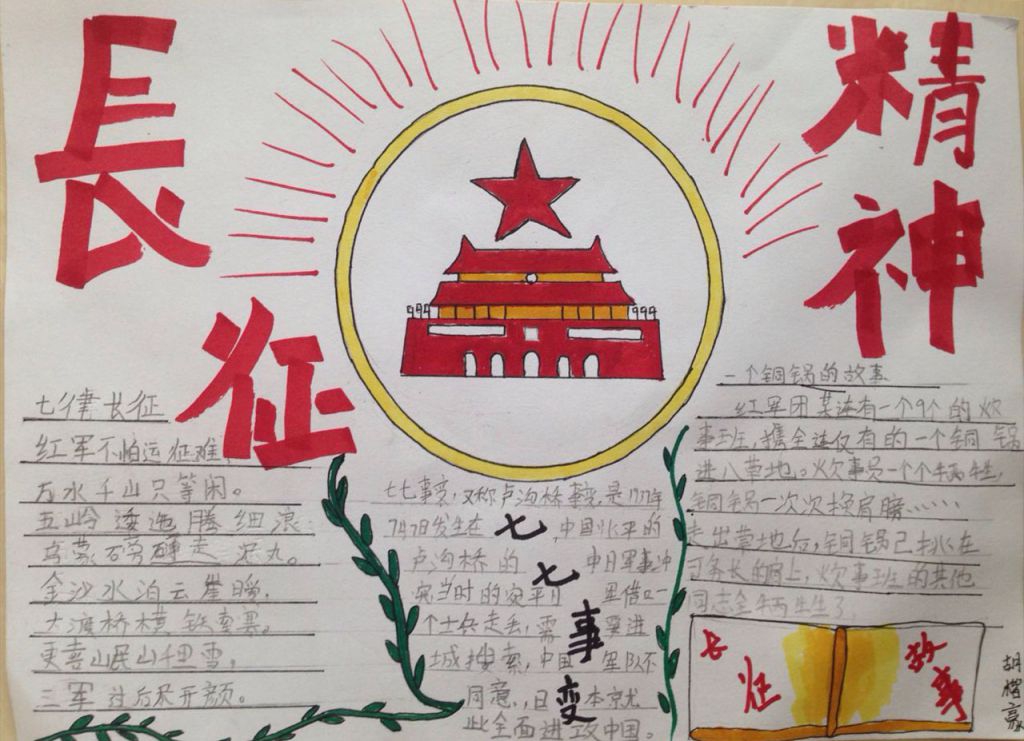 長征
精神
七律长征
红军不怕远征难,
万水千山只等闲。
五岭逶迤腾细浪
乌蒙磅礴走泥丸。
金沙水泊云崖暖,
大渡桥横铁索寒。
更喜岷山千里雪,
三军过后尽开颜。
七七事变,又称卢沟桥事变,是
7月7日发生在中国北平的
卢沟桥的中日军事冲
突当时的宛平
个士兵走丢,需要进
城搜索,中国军队不
同意,日本京尤
此全面进攻中国。
七七事变
一个铜锅的故事
红军团某连有一个9个的炊
事班,携全连仅有的一个铜锅
进八草地。炊事员一个个牺牲,
铜锅一次次换肩膀……
走出草地后,铜锅已挑在
司务长的肩上,炊事班的其他
同志全牺牲了
长征
故事
胡